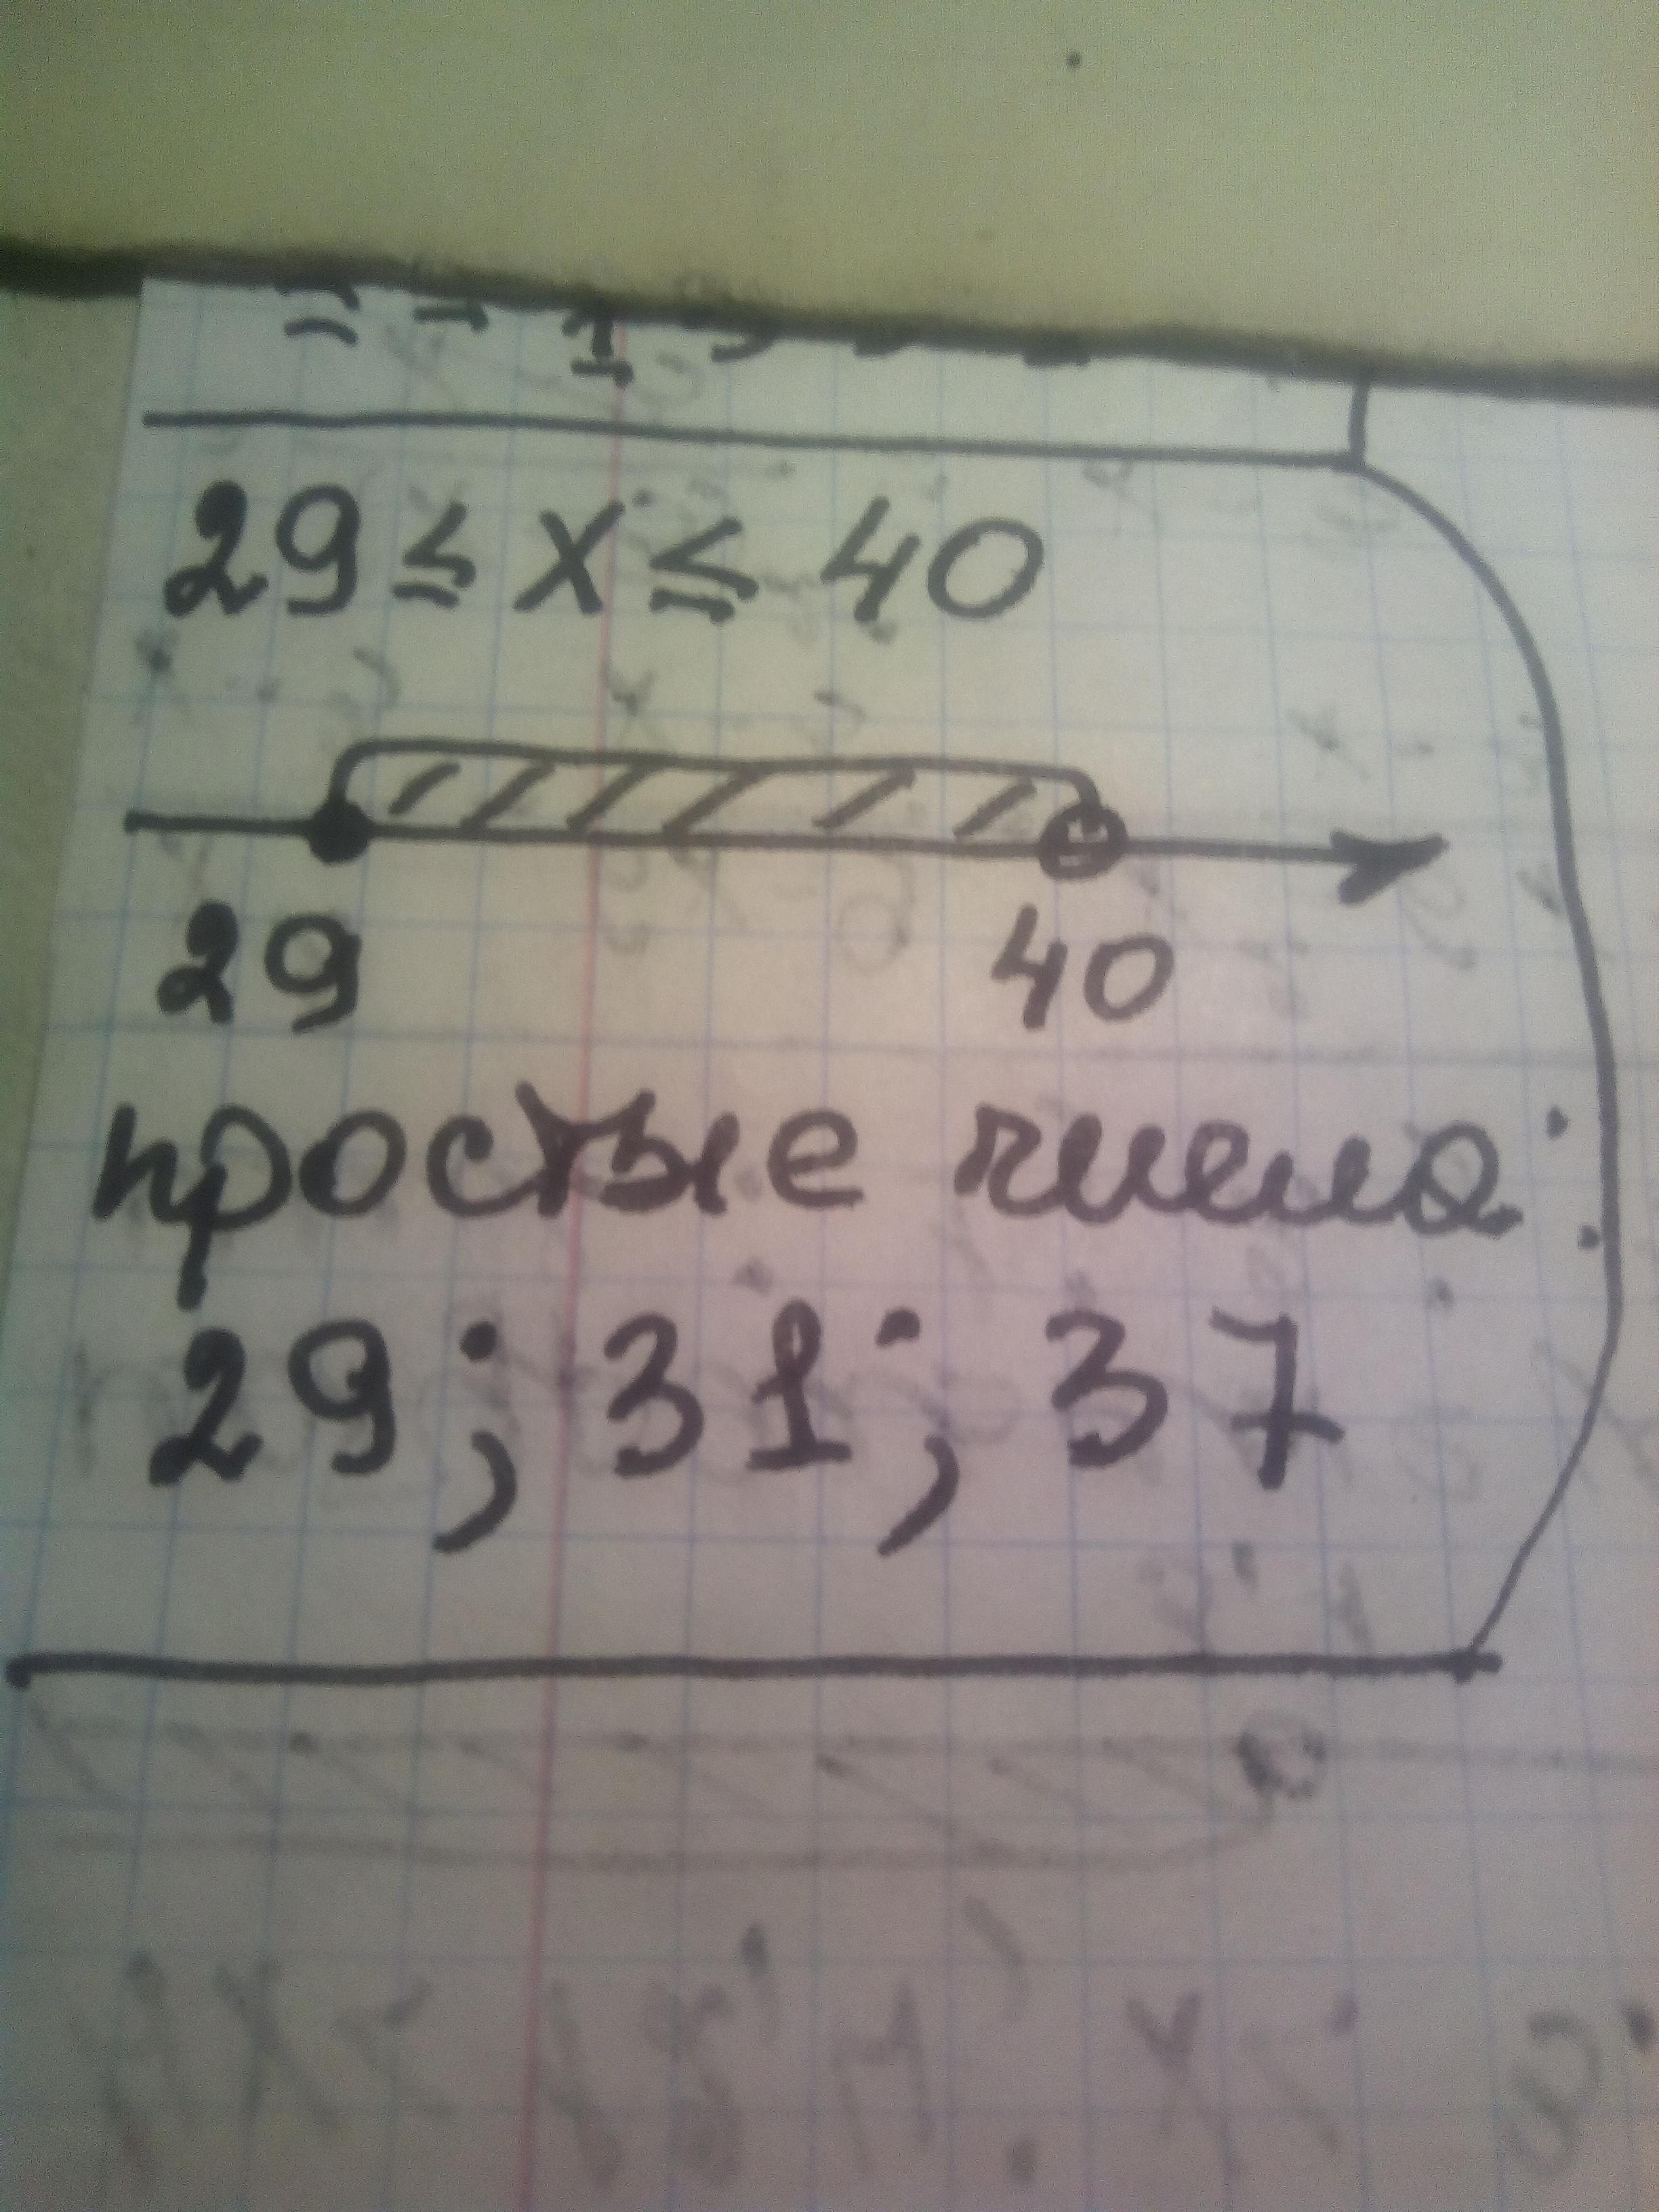 29 ≤ x ≤ 40
29 40
простые числа:
29; 31; 37